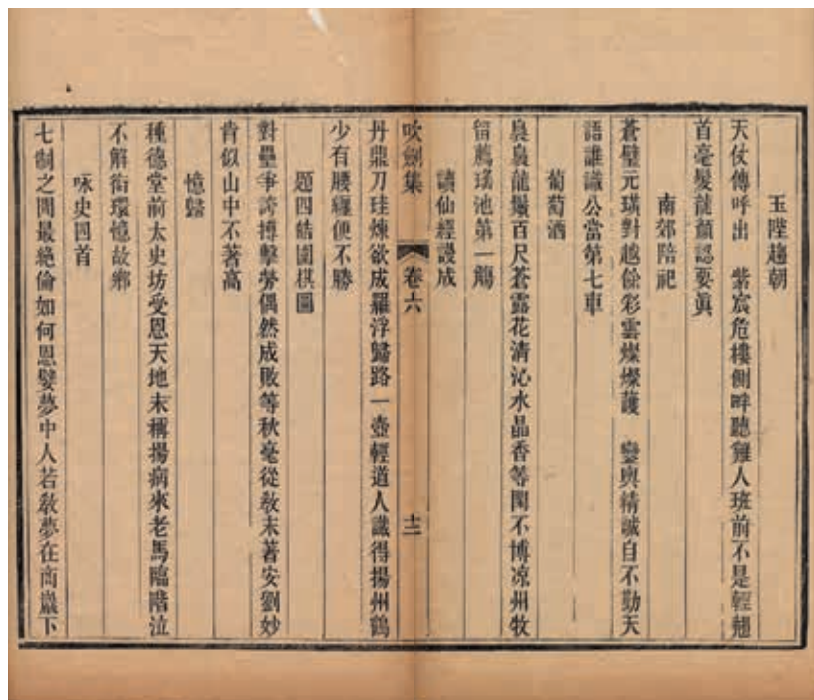 玉陛趨朝
天仗傳呼出　紫宸危樓側畔聽雞人班前不是輕翹
首毫髮龍顏認要眞
南郊陪祀
蒼璧元璜對越餘彩雲燦燦護　鑾輿精誠自不勤天
語誰識公當第七車
葡萄酒
裊裊龍鬚百尺蒼露花清沁水晶香等閑不博凉州牧
留薦瑤池第一觴
讀仙經謾成
吹劍集　卷六　十二
丹鼎刀珪煉欲成羅浮歸路一壺輕道人識得揚州鶴
少有腰纏便不勝
題四皓圍棋圖
對壘爭誇搏擊勞偶然成敗等秋毫從教末著安劉妙
肯似山中不著高
憶歸
種德堂前太史坊受恩天地未稱揚病來老馬臨階泣
不解銜環憶故鄉
咏史四首
七制之間最絶倫如何恩嬖夢中人若教夢在商巖下